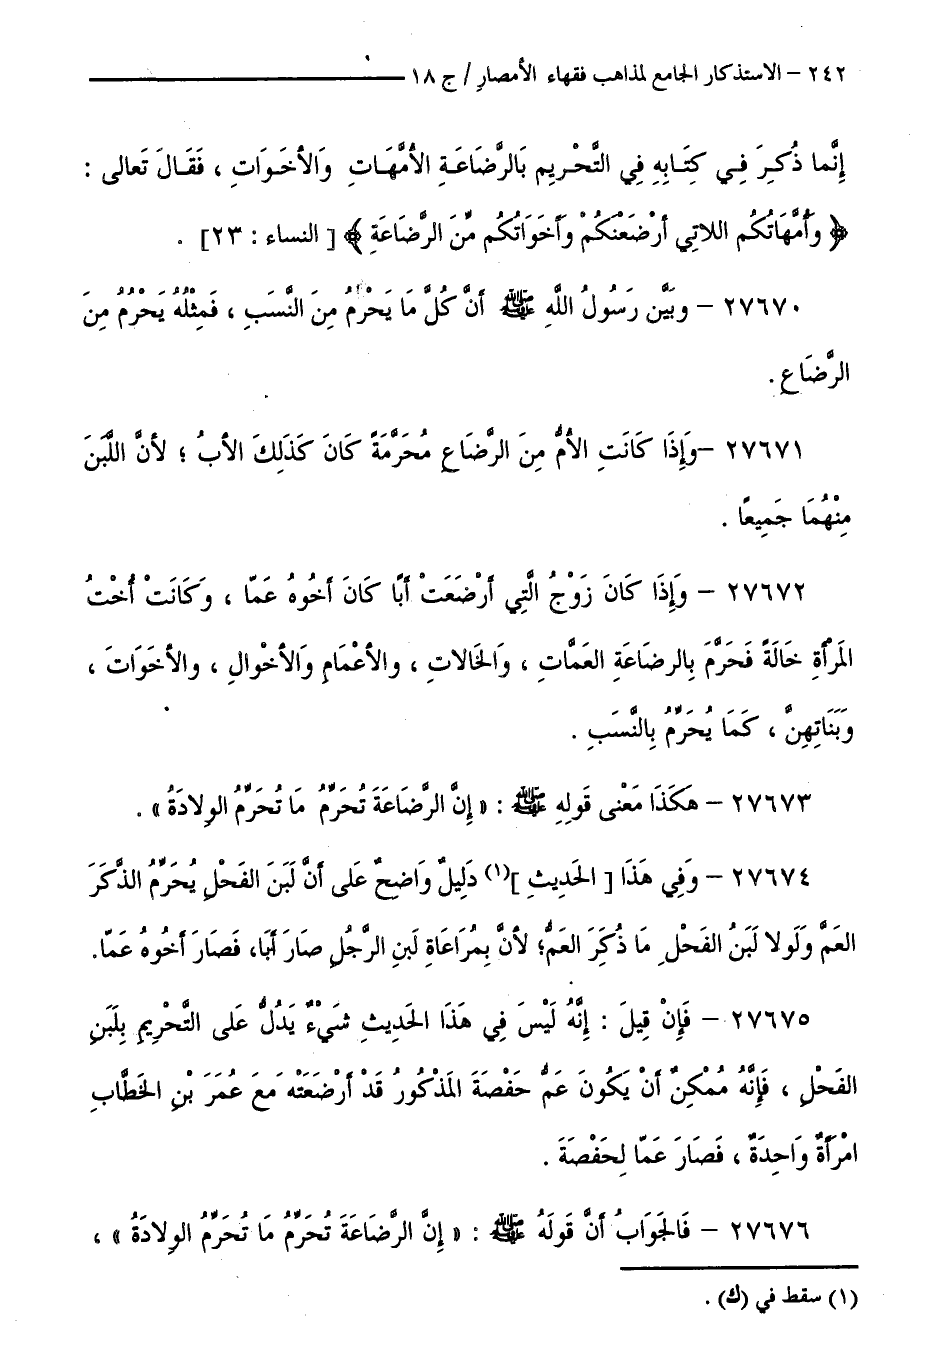 ٢٤٢ – الاستذكار الجامع لمذاهب فقهاء الأمصار / ج ١٨
إِنَّما ذُكِرَ فِي كِتَابِهِ فِي التَّحْرِيمِ بَالرَّضَاعَةِ الأُمَّهَاتِ وَالأَخَوَاتِ ، فَقَالَ تَعالى :
﴿ وَأُمَّهَاتُكُم اللاتِي أَرْضَعْنَكُمْ وَأَخَوَاتُكُم مِّنَ الرَّضَاعَةِ ﴾ [ النساء : ٢٣] .
٢٧٦٧٠ – وَبَيَّن رَسُولُ اللَّهِ ﷺ أَنَّ كُلَّ مَا يَحْرُمُ مِنَ النَّسَبِ ، فَمِثْلُهُ يَحْرُمُ مِنَ
الرَّضَاعِ.
٢٧٦٧١ –وَإِذَا كَانَتِ الأُمُّ مِنَ الرَّضَاعِ مُحَرَّمَةً كَانَ كَذَلِكَ الأَبُ ؛ لأَنَّ اللَّبَنَ
مِنْهُمَا جَمِيعًا .
٢٧٦٧٢ – وَإِذَا كَانَ زَوْجُ الَّتِي أَرْضَعَتْ أَبًا كَانَ أَخُوهُ عَمّا ، وَكَانَتْ أُخْتُ
المَرْأَةِ خَالَةً فَحَرَّمَ بِالرضَاعَةِ العَمَّات ، وَالخَالاتِ ، والأَعْمَامِ وَالأَخْوالِ ، والأَخَوَاتَ ،
وَبَنَاتِهِنَّ ، كَمَا يُحَرَّمُ بِالنَّسَبِ .
٢٧٦٧٣ – هَكَذَا مَعْنى قَولِهِ ﷺ : « إِنَّ الرَّضَاعَةَ تُحَرِّمُ مَا تُحَرِّمُ الوِلادَةُ » .
٢٧٦٧٤ – وَفِي هَذَا [ الحَدِيثِ ](١) دَلِيلٌ وَاضِحٌ عَلى أَنَّ لَبَنَ الفَحْلِ يُحَرِّمُ الذَّكَرَ
العَمَّ وَلَولا لَبَنُ الفَحْلِ مَا ذُكِرَ العَمُّ؛ لأَنَّ بِمُرَاعَاةِ لَبَنِ الرَّجُلِ صَارَ أَبًا، فَصَارَ أَخُوهُ عَمّا.
٢٧٦٧٥ – فَإِنْ قِيلَ : إِنَّهُ لَيْسَ فِي هَذَا الحَدِيثِ شَيْءٌ يَدُلُّ عَلى التَّحْرِيمِ بِلَبَنِ
الفَحْلِ ، فَإِنَّهُ مُمْكِنٌ أَنْ يَكُونَ عَمُّ حَفْصَةَ المَذْكُورُ قَدْ أَرْضَعَتْه مَعَ عُمَرَ بْنِ الخَطَّابِ
امْرَأَةٌ وَاحِدَةٌ ، فَصَارَ عَمّا لِحَفْصَةَ .
٢٧٦٧٦ – فَالجَوَابُ أَنَّ قَولَهُ ﷺ : « إِنَّ الرَّضَاعَةَ تُحَرِّمُ مَا تُحَرِّمُ الوِلادَةُ » ،
(١) سقط في (ك) .